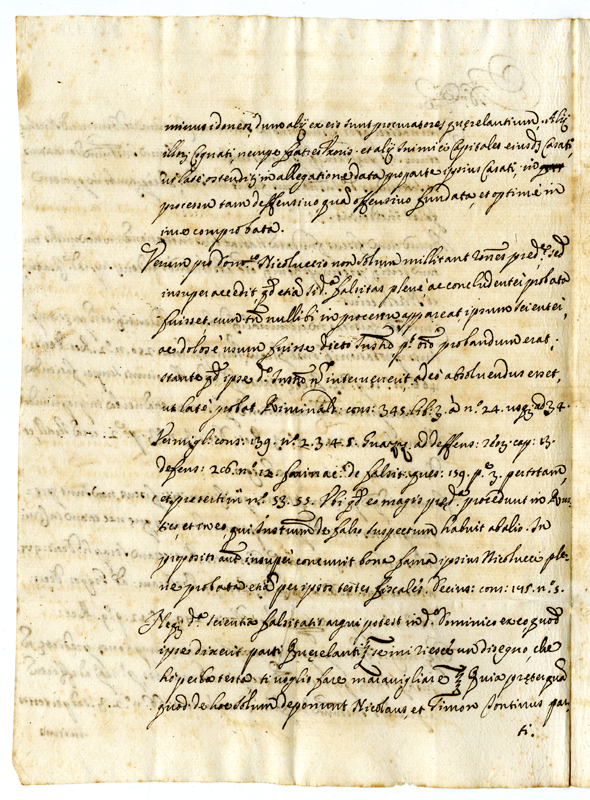 minus idonei, dum alij ex eis sunt procuratores querelantium, Alij
illorum Cognati, nempe fratres et alij Inimici Capitales eiusd. Casati,
ut late ostendit in allegatione data pro parte ipsius Casati, in
processu tam deffensivo quam offensivo fundata, et optime in
imo comprobata.
Verum pro Nicoluccio non solum militant rones pred. sed
insuper accedit quod etiam si d. falsitas plene ac concludenter probata
fuisset, cum nullibi in processu appareat ipsum scienter,
ac dolose usum fuisse dicto probandum erat,
stante quod ipse d. non intervenerit, adeo absolvendus esset,
ut late probat cons: 345. lib: 3. à n.º 24. usq; ad 34.
cons: 139. n.º 2. 3. 4. 5. ad deffens: cap: 13.
defens: 26. n.º 12. farinac: de falsit: ques: 159. p.º 3. per totam,
et presertim n.º 53. 55. Ubi quod eo magis pred. procedunt in
et in eo, qui de falso suspectum habuit ab alio. In
proposito aut. insuper concurrit bona fama ipsius Nicolucci ple-
ne probata etiam per ipsos testes fiscales. Decius: cons: 195. n.º 5.
Neq; d. scientia falsitatis argui potest in d. Dominico ex eo quod
ipse dixerit parti Querelanti se mi riesce un disegno, che
hò per la testa ti voglio fare maravigliare Quia preter quam
quod de hoc solum deponunt Nicolaus, et Simon Continus par-
ti.